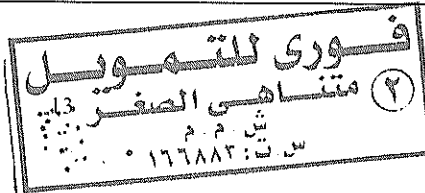 فورى للتمويل
متناهى الصغر ٢
ش.م.م
س.ت: ١٦٦٨٨٢